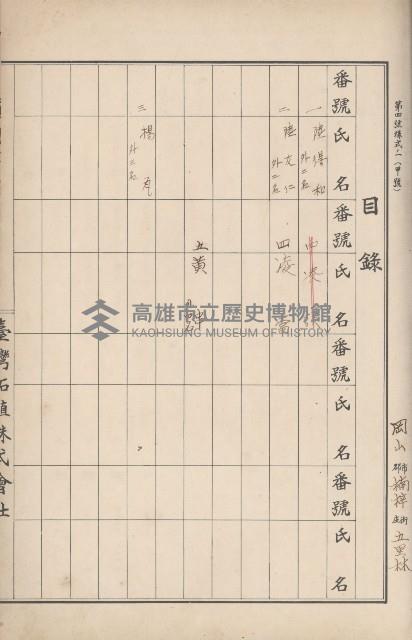 第四號樣式ノ一（甲號）
目錄
岡山 市郡 楠梓 街庄 五里林
番號 氏名 番號 氏名 番號 氏名 番號 氏名
一 陸得和 外二名
二 陸友仁 外二名 四 凌
五 黃
三 楊 外二名
高雄市立歷史博物館
KAOHSIUNG MUSEUM OF HISTORY
臺灣 株式會社